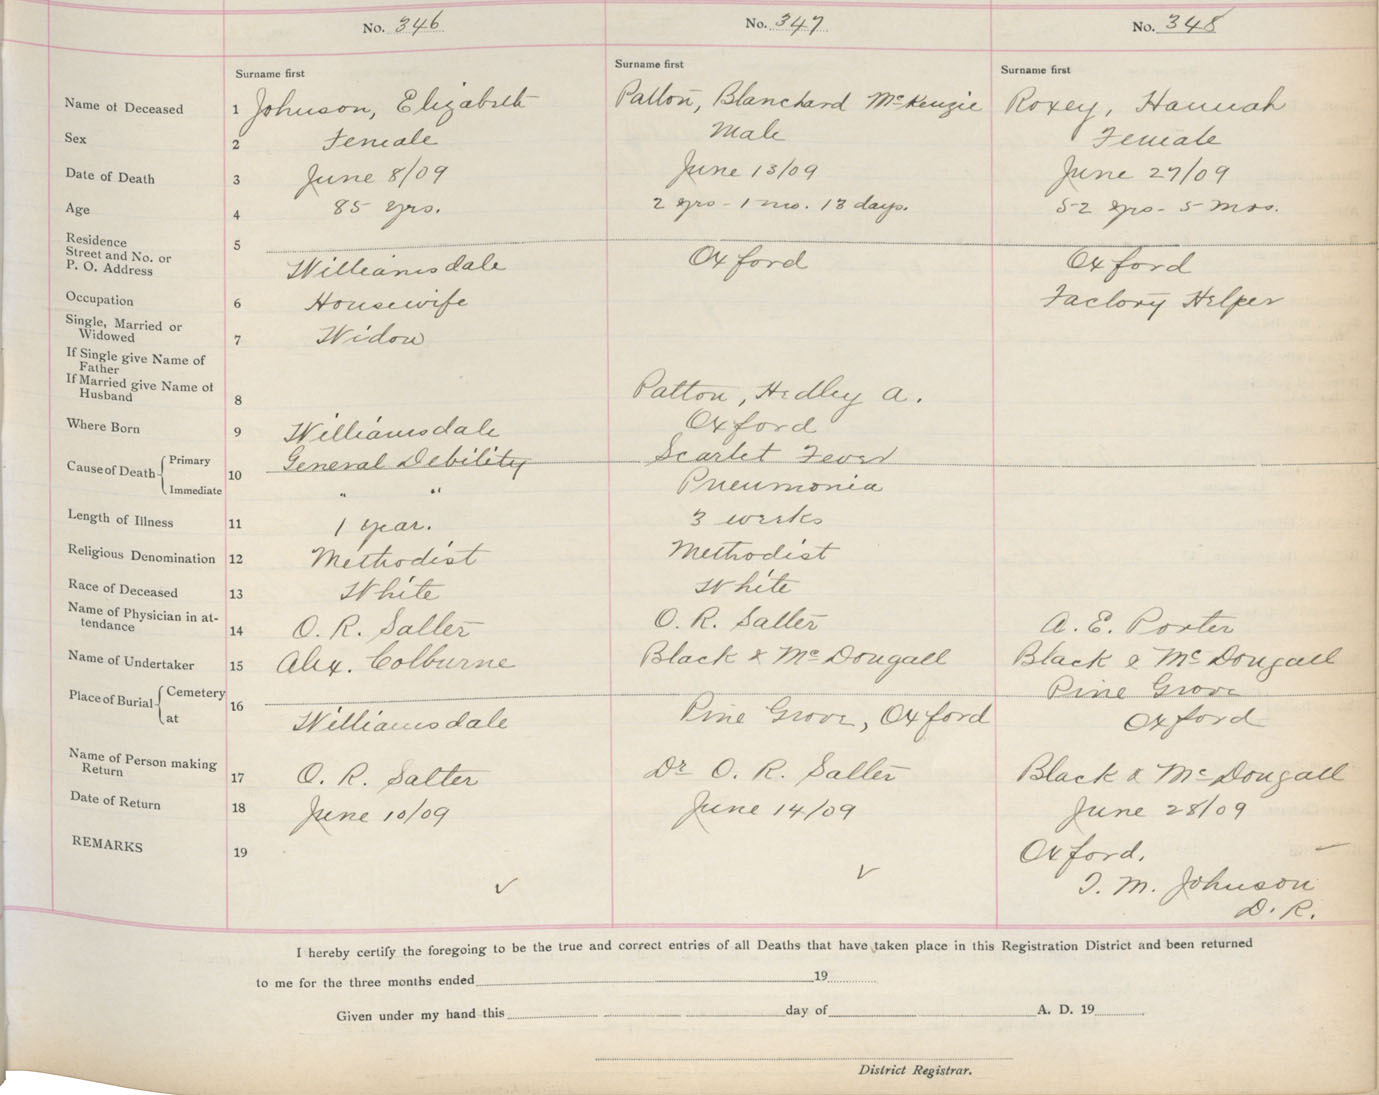 No. 346 No. 347 No. 348
Surname first Surname first Surname first
Name of Deceased 1 Johnson, Elizabeth Patton, Blanchard McKenzie Roxey, Hannah
Sex 2 Female Male Female
Date of Death 3 June 8/09 June 13/09 June 27/09
Age 4 85 yrs. 2 yrs - 1 mo. 13 days. 52 yrs - 5 mos.
Residence 5
Street and No. or
P. O. Address Williamsdale Oxford Oxford
Occupation 6 Housewife Factory Helper
Single, Married or
Widowed 7 Widow
If Single give Name of
Father
If Married give Name of
Husband 8 Patton, Hedley A.
Where Born 9 Williamsdale Oxford
Cause of Death Primary 10 General Debility Scarlet Fever
Immediate " " Pneumonia
Length of Illness 11 1 year. 3 weeks
Religious Denomination 12 Methodist Methodist
Race of Deceased 13 White White
Name of Physician in at-
tendance 14 O. R. Salter O. R. Salter A. E. Porter
Name of Undertaker 15 Alex. Colburne Black & McDougall Black & McDougall
Place of Burial Cemetery 16 Pine Grove
at Williamsdale Pine Grove, Oxford Oxford
Name of Person making
Return 17 O. R. Salter Dr O. R. Salter Black & McDougall
Date of Return 18 June 10/09 June 14/09 June 28/09
REMARKS 19 Oxford.
T. M. Johnson
D. R.
I hereby certify the foregoing to be the true and correct entries of all Deaths that have taken place in this Registration District and been returned
to me for the three months ended 19
Given under my hand this day of A. D. 19
District Registrar.